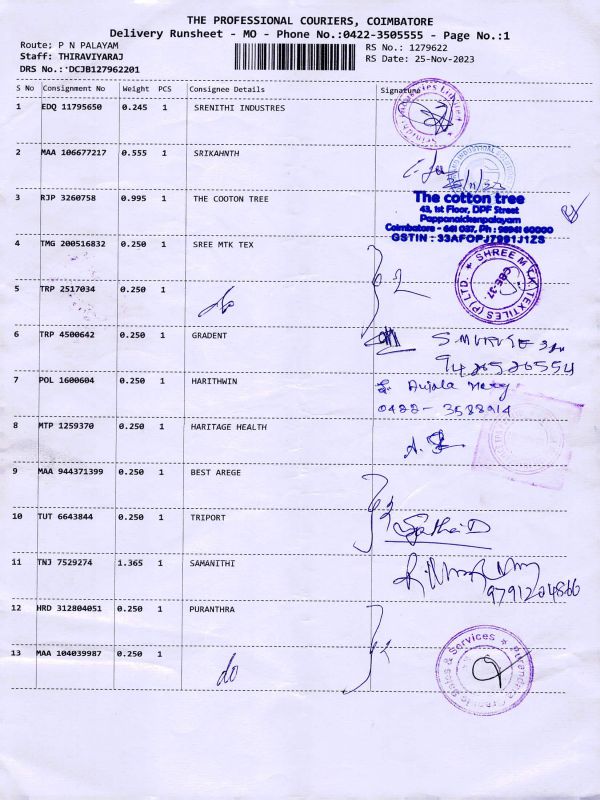 THE PROFESSIONAL COURIERS, COIMBATORE
Delivery Runsheet - MO - Phone No.:0422-3505555 - Page No.:1
Route; P N PALAYAM RS No.: 1279622
Staff: THIRAVIYARAJ RS Date: 25-Nov-2023
DRS No.:'DCJB127962201
S No Consignment No Weight PCS Consignee Details Signature
1 EDQ 11795650 0.245 1 SRENITHI INDUSTRES
2 MAA 106677217 0.555 1 SRIKAHNTH
3 RJP 3260758 0.995 1 THE COOTON TREE
The cotton tree
43, 1st Floor, DPF Street
Pappanaickenpalayam
Coimbatore - 641 037, Ph : 98941 60000
GSTIN : 33AFOPJ7991J1ZS
4 TMG 200516832 0.250 1 SREE MTK TEX
SHREE M.T.K. TEXTILES (P) LTD.
CBE-37.
5 TRP 2517034 0.250 1 do
6 TRP 4500642 0.250 1 GRADENT
9426526554
7 POL 1600604 0.250 1 HARITHWIN
0422- 3588914
8 MTP 1259370 0.250 1 HARITAGE HEALTH
9 MAA 944371399 0.250 1 BEST AREGE
10 TUT 6643844 0.250 1 TRIPORT
11 TNJ 7529274 1.365 1 SAMANITHI
12 HRD 312804051 0.250 1 PURANTHRA
13 MAA 104039987 0.250 1 do
Sales & Services